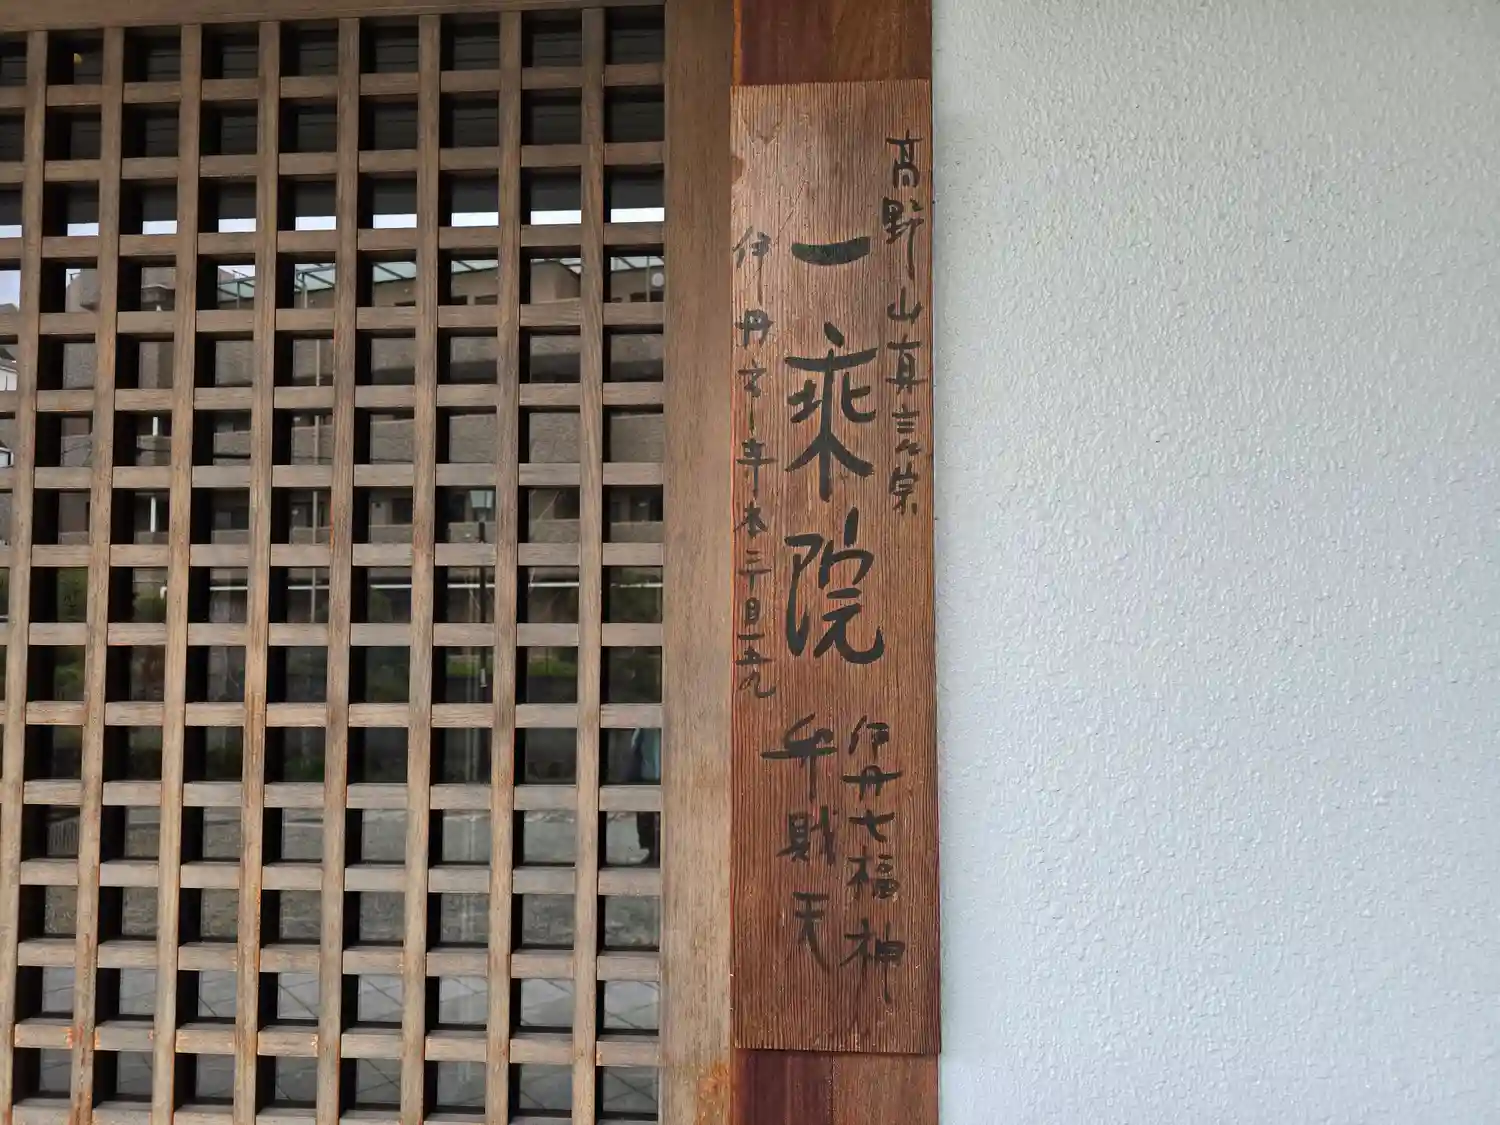 高野山真言宗
一乘院
伊丹七福神
弁財天
伊丹市寺本二丁目一五九